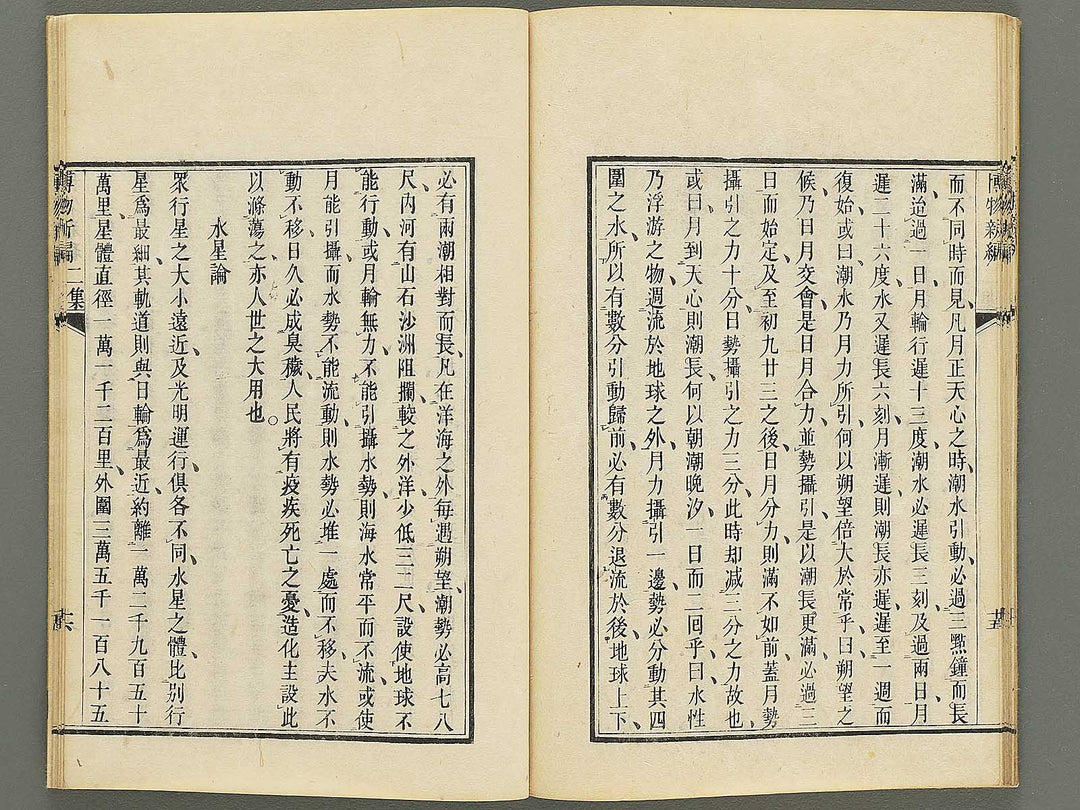 博物新編
而不同時而見、凡月正天心之時、潮水引動、必過三點鐘而長
滿、迨過一日、月輪行遲十三度、潮水必遲長三刻、及過兩日、月
遲二十六度、水又遲長六刻、月漸遲則潮長亦遲、遲至一週而
復始、或曰、潮水乃月力所引、何以朔望倍大於常乎、曰、朔望之
候、乃日月交會、是日月合力、並勢攝引、是以潮長更滿、必過三
日而始定、及至初九廿三之後、日月分力、則滿不如前、蓋月勢
攝引之力十分、日勢攝引之力三分、此時却减三分之力故也、
或曰、月到天心則潮長、何以朝潮晚汐、一日而二回乎、曰、水性
乃浮游之物、週流於地球之外、月力攝引一邊、勢必分動其四
圍之水、所以有數分引動歸前、必有數分退流於後、地球上下、
必有兩潮相對而長、凡在洋海之外、每遇朔望、潮勢必高七八
尺、內河有山石沙洲阻攔、較之外洋、少低三二尺、設使地球不
能行動、或月輪無力、不能引攝水勢、則海水常平而不流、或使
月能引攝、而水勢不能流動、則水勢必堆一處而不移、夫水不
動不移、日久必成臭穢、人民將有疫疾死亡之憂、造化主設此
以滌蕩之、亦人世之大用也。
水星論
眾行星之大小遠近、及光明運行、俱各不同、水星之體、比別行
星爲最細、其軌道則與日輪爲最近、約離一萬二千九百五十
萬里、星體直徑一萬一千二百里、外圍三萬五千一百八十五
博物新編 二集
十六